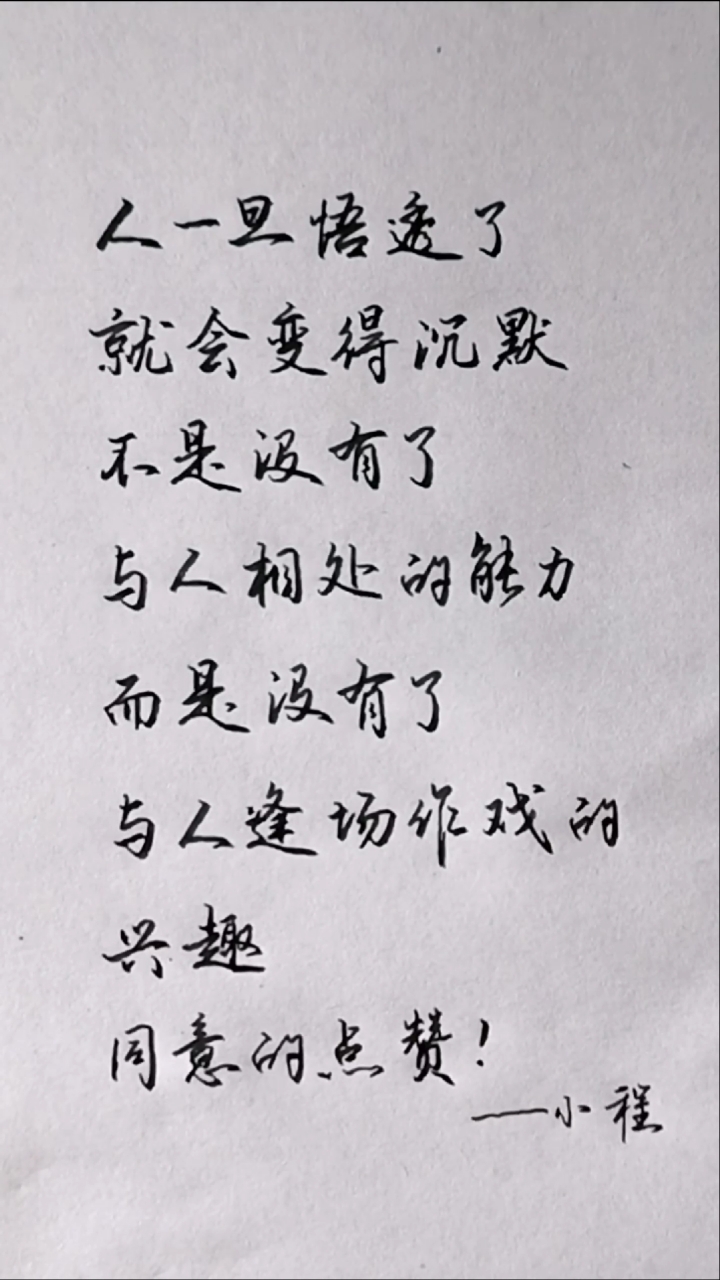 人一旦悟透了
就会变得沉默
不是没有了
与人相处的能力
而是没有了
与人逢场作戏的
兴趣
同意的点赞!
——小程